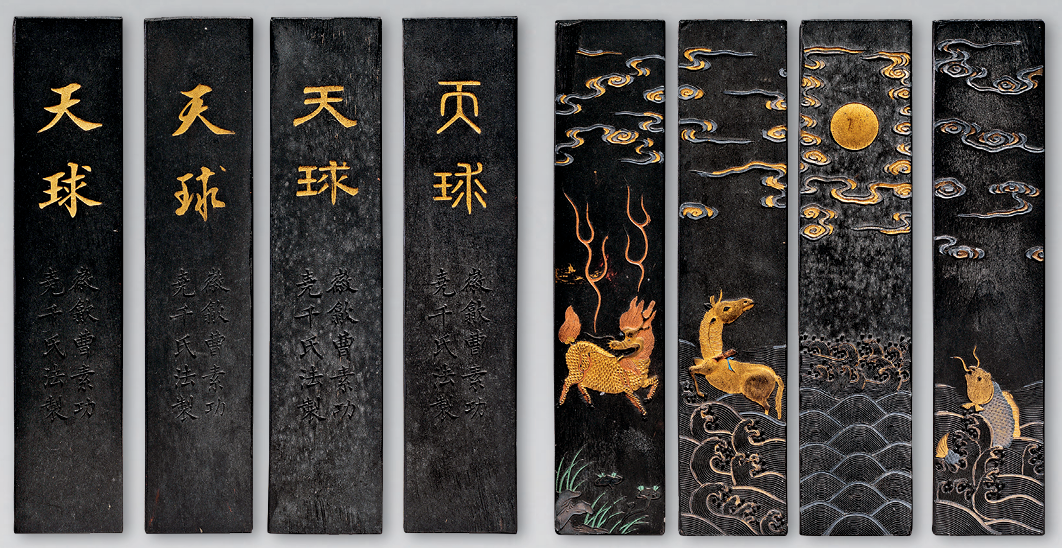 天球
徽歙曹素功
堯千氏法製
天球
徽歙曹素功
堯千氏法製
天球
徽歙曹素功
堯千氏法製
天球
徽歙曹素功
堯千氏法製